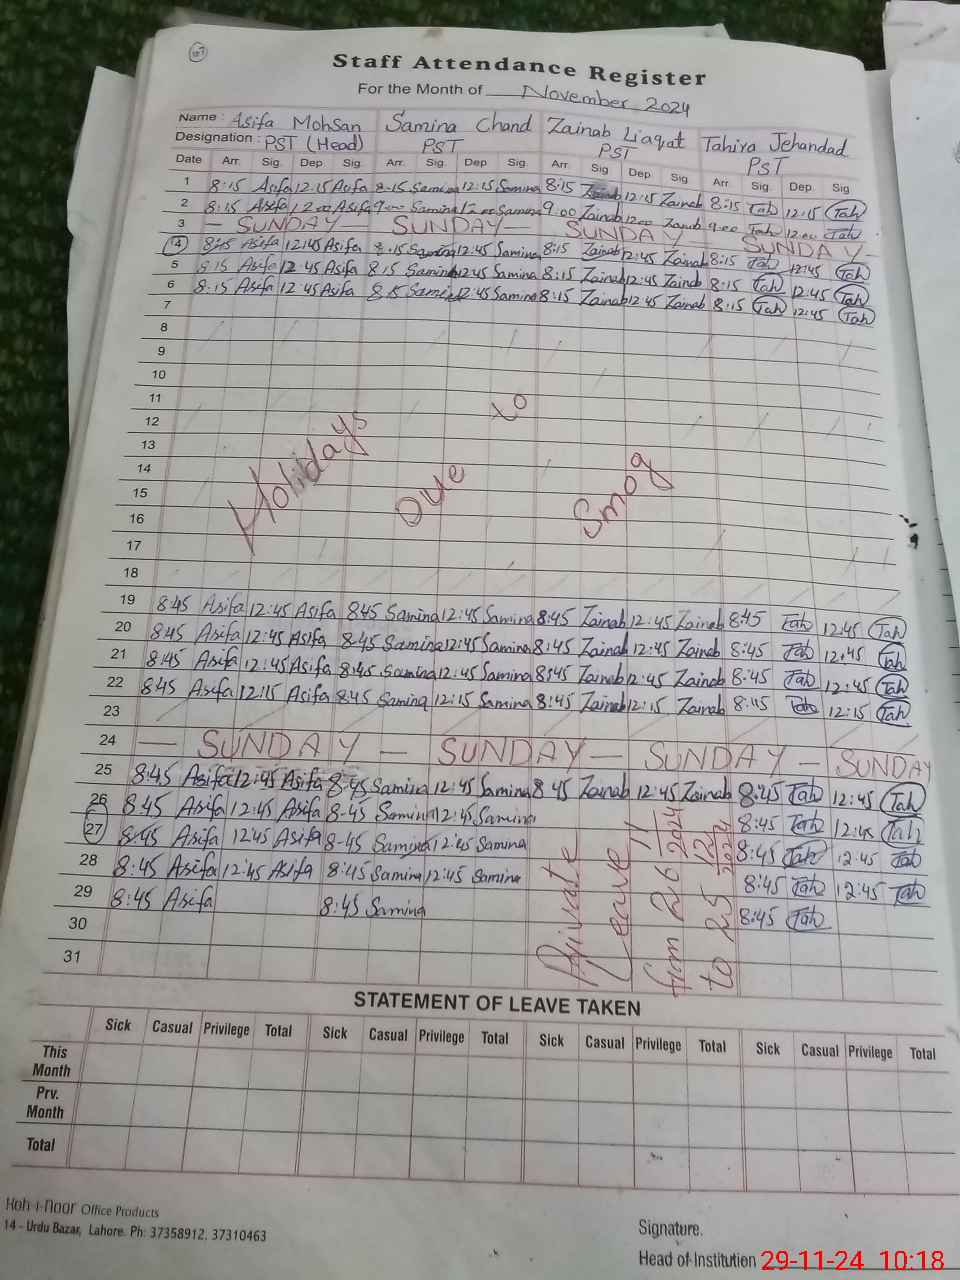 Staff Attendance Register
For the Month of November 2024
Name : Asifa Mohsan Samina Chand Zainab Liaqat Tahira Jehandad
Designation : PST (Head) PST PST PST
Date Arr. Sig. Dep Sig. Arr. Sig. Dep Sig. Arr. Sig Dep Sig Arr. Sig. Dep. Sig
1 8:15 Asifa 12:15 Asifa 8-15 Samina 12:15 Samina 8:15 Zainab 12:15 Zainab 8:15 Tah 12:15 Tah
2 8:15 Asifa 12:00 Asifa 9:00 Samina 12:00 Samina 9:00 Zainab 12:00 Zainab 9:00 Tah 12:00 Tah
3 - SUNDAY - SUNDAY - SUNDAY - SUNDAY -
4 8:15 Asifa 12:45 Asifa 8:15 Samina 12:45 Samina 8:15 Zainab 12:45 Zainab 8:15 Tah 12:45 Tah
5 8:15 Asifa 12:45 Asifa 8:15 Samina 12:45 Samina 8:15 Zainab 12:45 Zainab 8:15 Tah 12:45 Tah
6 8:15 Asifa 12:45 Asifa 8:15 Samina 12:45 Samina 8:15 Zainab 12:45 Zainab 8:15 Tah 12:45 Tah
7
8
9
10
11
12
13
14
15
16
17
18
Holidays Due to Smog
19 8:45 Asifa 12:45 Asifa 8:45 Samina 12:45 Samina 8:45 Zainab 12:45 Zainab 8:45 Tah 12:45 Tah
20 8:45 Asifa 12:45 Asifa 8:45 Samina 12:45 Samina 8:45 Zainab 12:45 Zainab 8:45 Tah 12:45 Tah
21 8:45 Asifa 12:45 Asifa 8:45 Samina 12:45 Samina 8:45 Zainab 12:45 Zainab 8:45 Tah 12:45 Tah
22 8:45 Asifa 12:15 Asifa 8:45 Samina 12:15 Samina 8:45 Zainab 12:15 Zainab 8:45 Tah 12:15 Tah
23
24 - SUNDAY - SUNDAY - SUNDAY - SUNDAY
25 8:45 Asifa 12:45 Asifa 8:45 Samina 12:45 Samina 8:45 Zainab 12:45 Zainab 8:45 Tah 12:45 Tah
26 8:45 Asifa 12:45 Asifa 8-45 Samina 12:45 Samina 8:45 Tah 12:45 Tah
27 8:45 Asifa 12:45 Asifa 8-45 Samina 12:45 Samina 8:45 Tah 12:45 Tah
28 8:45 Asifa 12:45 Asifa 8:45 Samina 12:45 Samina 8:45 Tah 12:45 Tah
29 8:45 Asifa 8:45 Samina 8:45 Tah
30
31
Private
Leave
from 26 11 2024
to 25 12 2024
STATEMENT OF LEAVE TAKEN
Sick Casual Privilege Total Sick Casual Privilege Total Sick Casual Privilege Total Sick Casual Privilege Total
This Month
Prv. Month
Total
Koh-i-Noor Office Products
14 - Urdu Bazar, Lahore. Ph: 37358912, 37310463
Signature.
Head of Institution
29-11-24 10:18